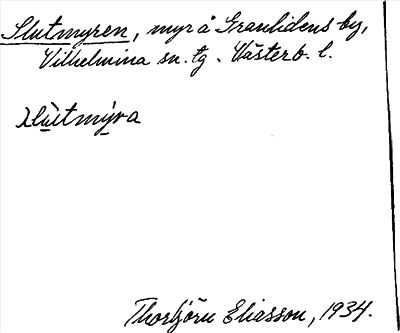 Slutmyren, myr å Granlidens by,
Vilhelmina sn. tg. Västerb. l.
Slùtmýra
Thorbjörn Eliasson, 1934.